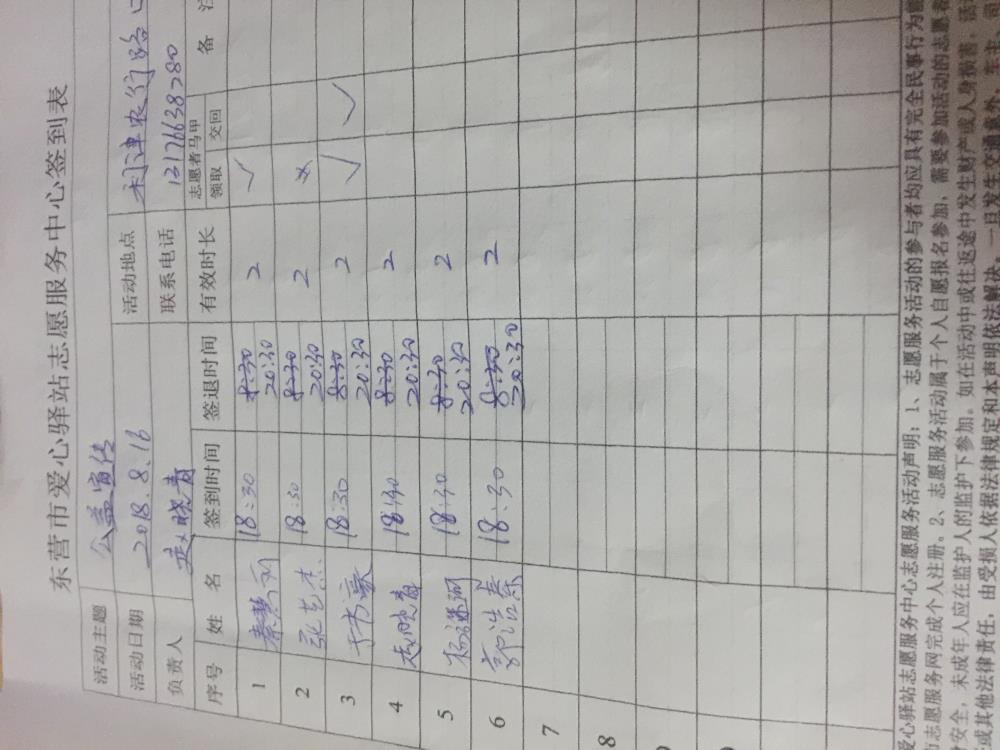 东营市爱心驿站志愿服务中心签到表
活动主题 公益宣传
活动日期 2018.8.16 活动地点 利津农行路口
负责人 赵晓青 联系电话 13176638780
序号 姓 名 签到时间 签退时间 有效时长 志愿者马甲 领取 交回 备 注
1 秦慧利 18:30 8:30 20:30 2 ✓
2 张艺杰 18:30 8:30 20:30 2
3 于书豪 18:30 8:30 20:30 2 ✓ ✓
4 赵晓青 18:30 8:30 20:30 2
5 杨 18:30 8:30 20:30 2
6 郭浩泰 18:30 8:30 20:30 2
7
8
爱心驿站志愿服务中心志愿服务活动声明：1、志愿服务活动的参与者均应具有完全民事行为能
志愿服务网完成个人注册。2、志愿服务活动属于个人自愿报名参加，需要参加活动的志愿者
安全，未成年人应在监护人的监护下参加。如在活动中或往返途中发生财产或人身损害，
或其他法律责任，由受损人依据法律规定和本声明依法解决。一旦发生交通意外，车主、司